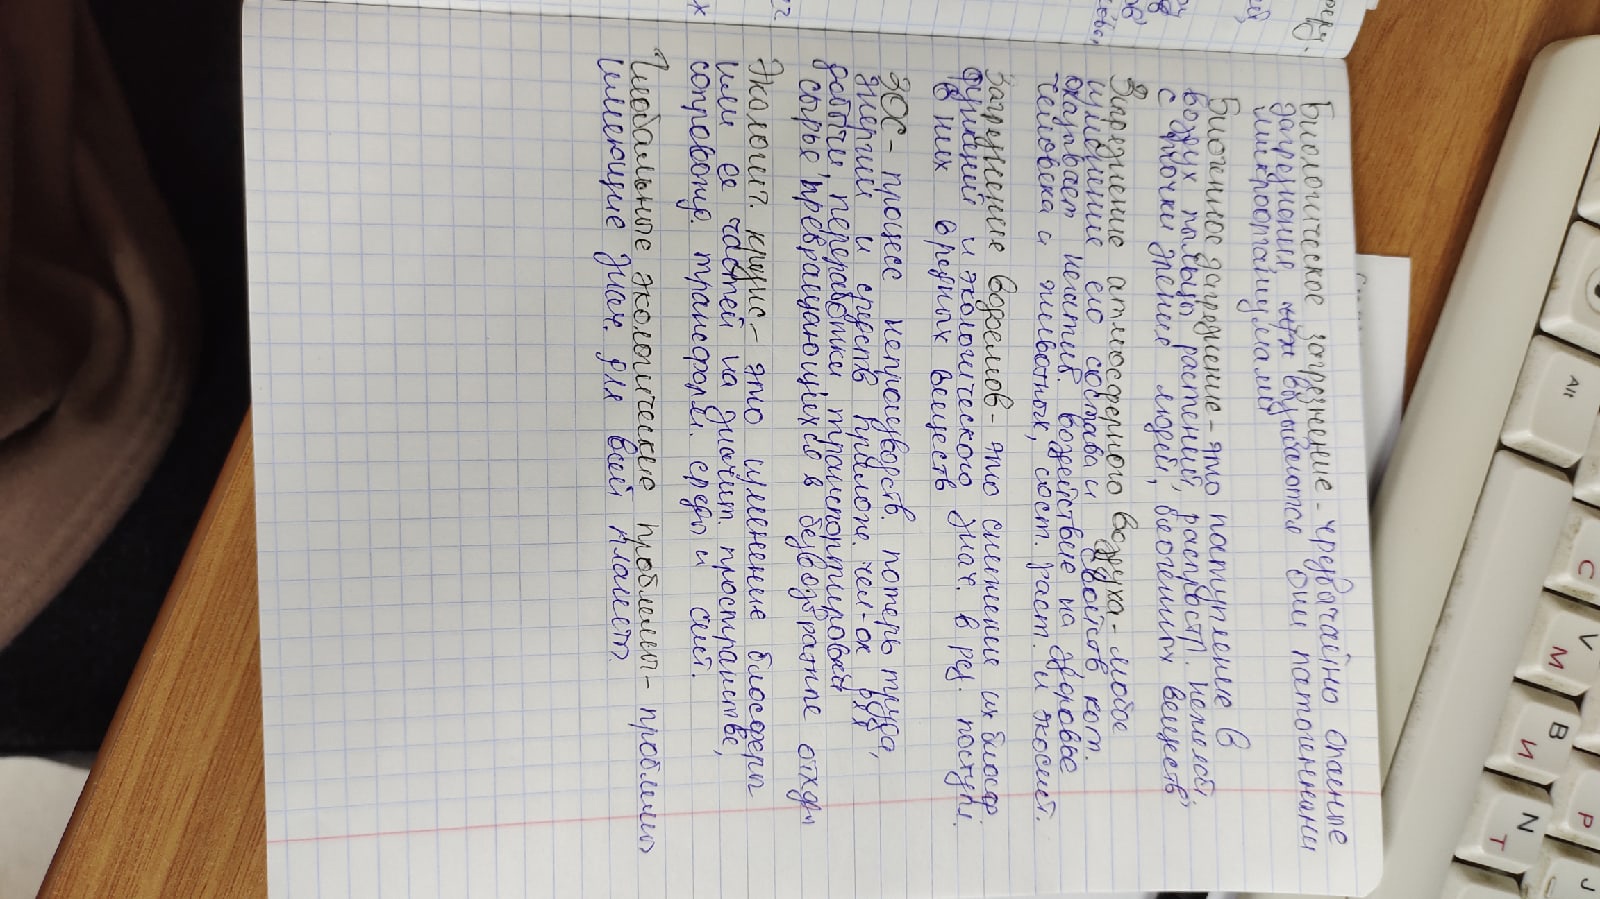 Alt
C
С
V
М
B
И
N
Т
Р
J
Биологическое загрезнение - чрезвычайно опасные
загрезнения, вызываются они патогеннами
микроорганизмами
Биогенное загрезнение - это поступление в
воздух пыльцы растений, распростр.
с точки зрения людей, биогенных веществ
Загрезнение атмосферного воздуха - любое
изменение его состава и свойств, кот.
оказывает негатив. воздействие на здоровье
человека и животных, сост. раст. и экосист.
Загрезнение водоемов - это снижение их биосф.
функций и экологического знач. в рез. поступл.
в них вредных веществ
ЗОС - процесс непроизводств. потерь труда,
энергии и средств прилож. чел-ок для
добычи, переработки, транспортировки
сырье превращающихся в безвозвратные отходы
Экологич. кризис - это изменение биосферы
или ее частей на значит. пространстве,
сопровожд. трансформ. среды и сист.
Глобальные экологические проблемы - проблемы
имеющие знач. для всей планеты